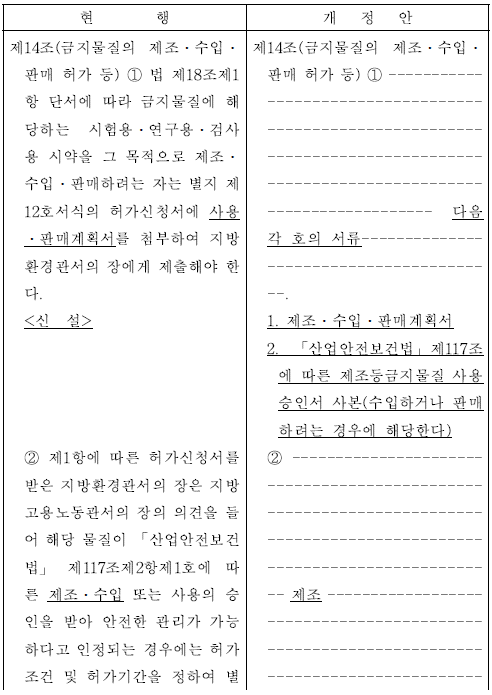 현 행
개 정 안
제14조(금지물질의 제조ㆍ수입ㆍ
판매 허가 등) ① 법 제18조제1
항 단서에 따라 금지물질에 해
당하는 시험용ㆍ연구용ㆍ검사
용 시약을 그 목적으로 제조ㆍ
수입ㆍ판매하려는 자는 별지 제
12호서식의 허가신청서에 사용
ㆍ판매계획서를 첨부하여 지방
환경관서의 장에게 제출해야 한
다.
<신 설>
② 제1항에 따른 허가신청서를
받은 지방환경관서의 장은 지방
고용노동관서의 장의 의견을 들
어 해당 물질이 「산업안전보건
법」 제117조제2항제1호에 따
른 제조ㆍ수입 또는 사용의 승
인을 받아 안전한 관리가 가능
하다고 인정되는 경우에는 허가
조건 및 허가기간을 정하여 별
제14조(금지물질의 제조ㆍ수입ㆍ
판매 허가 등) ① -----------
-------------------------
-------------------------
-------------------------
-------------------------
------------------- 다음
각 호의 서류--------------
-------------------------
--.
1. 제조ㆍ수입ㆍ판매계획서
2. 「산업안전보건법」제117조
에 따른 제조등금지물질 사용
승인서 사본(수입하거나 판매
하려는 경우에 해당한다)
② ----------------------
-------------------------
-------------------------
-------------------------
-------------------------
-- 제조 ------------------
-------------------------
-------------------------
-------------------------